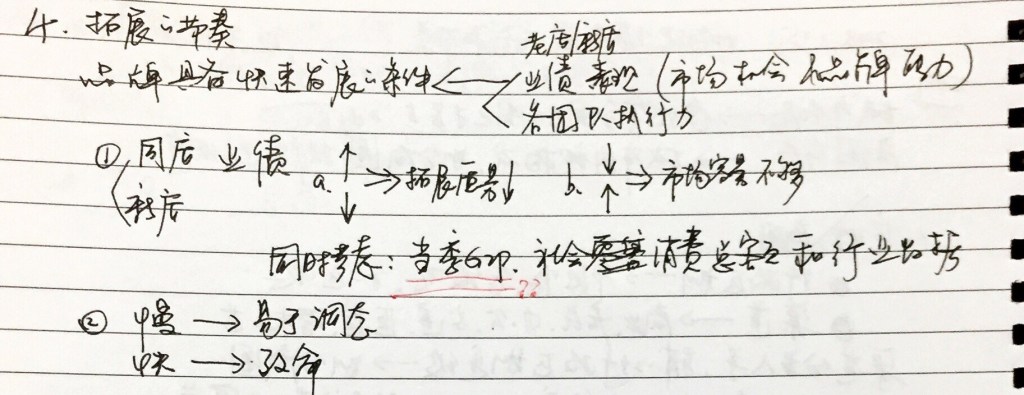 4. 拓展之节奏
老店/新店
品牌具备快速发展之条件 业绩表现 (市场机会和品牌能力)
各团队执行力
① 同店业绩 a. ↑ → 拓展质量↓ b. ↓ → 市场容量不够
新店 ↓ ↑
同时考虑: 当季GDP. 社会零售消费总额和行业数据
??
② 慢 → 易于调态
快 → 致命